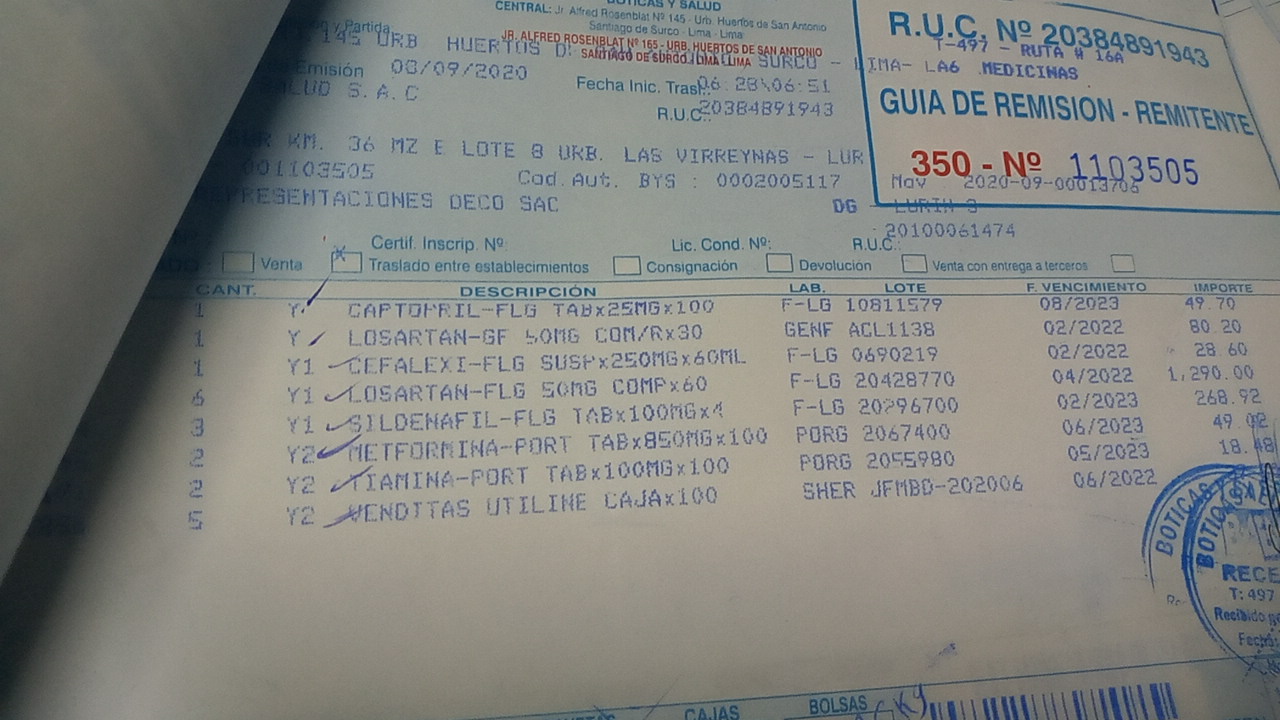 BOTICAS Y SALUD
CENTRAL: Jr. Alfred Rosenblat Nº 145 - Urb. Huertos de San Antonio
Santiago de Surco - Lima - Lima
y Partida
JR. ALFRED ROSENBLAT Nº 165 - URB. HUERTOS DE SAN ANTONIO
SANTIAGO DE SURCO - LIMA - LIMA
145 URB HUERTOS D SURCO - LIMA- LA6 MEDICINAS
Emisión 08/09/2020
Fecha Inic. Trasl.: 06 28\06:51
LUD S.A.C
R.U.C.: 20384891943
R.U.C. Nº 20384891943
T-497 - RUTA # 16A
GUIA DE REMISION - REMITENTE
350 - Nº 1103505
May 2020-09-00013706
KM. 36 MZ E LOTE 8 URB. LAS VIRREYNAS - LUR
001103505 Cod.Aut. BYS : 0002005117
PRESENTACIONES DECO SAC DG - LURIN 3
20100061474
Certif. Inscrip. Nº Lic. Cond. Nº: R.U.C.:
Venta Traslado entre establecimientos Consignación Devolución Venta con entrega a terceros
CANT. DESCRIPCIÓN LAB. LOTE F. VENCIMIENTO IMPORTE
1 Y CAPTOPRIL-FLG TABx25MGx100 F-LG 10811579 08/2023 49.70
1 Y LOSARTAN-GF 50MG COM/Rx30 GENF ACL1138 02/2022 80.20
1 Y1 CEFALEXI-FLG SUSPx250MGx60ML F-LG 0690219 02/2022 28.60
6 Y1 LOSARTAN-FLG 50MG COMPx60 F-LG 20428770 04/2022 1,290.00
3 Y1 SILDENAFIL-FLG TABx100MGx4 F-LG 20296700 02/2023 268.92
2 Y2 METFORMINA-PORT TABx850MGx100 PORG 2067400 06/2023 49.02
2 Y2 TIAMINA-PORT TABx100MGx100 PORG 2055980 05/2023 18.48
5 Y2 VENDITAS UTILINE CAJAx100 SHER JFMBD-202006 06/2022
BOTICAS Y
BOTICAS
RECE
T: 497
Recibido
Fecha
CAJAS BOLSAS